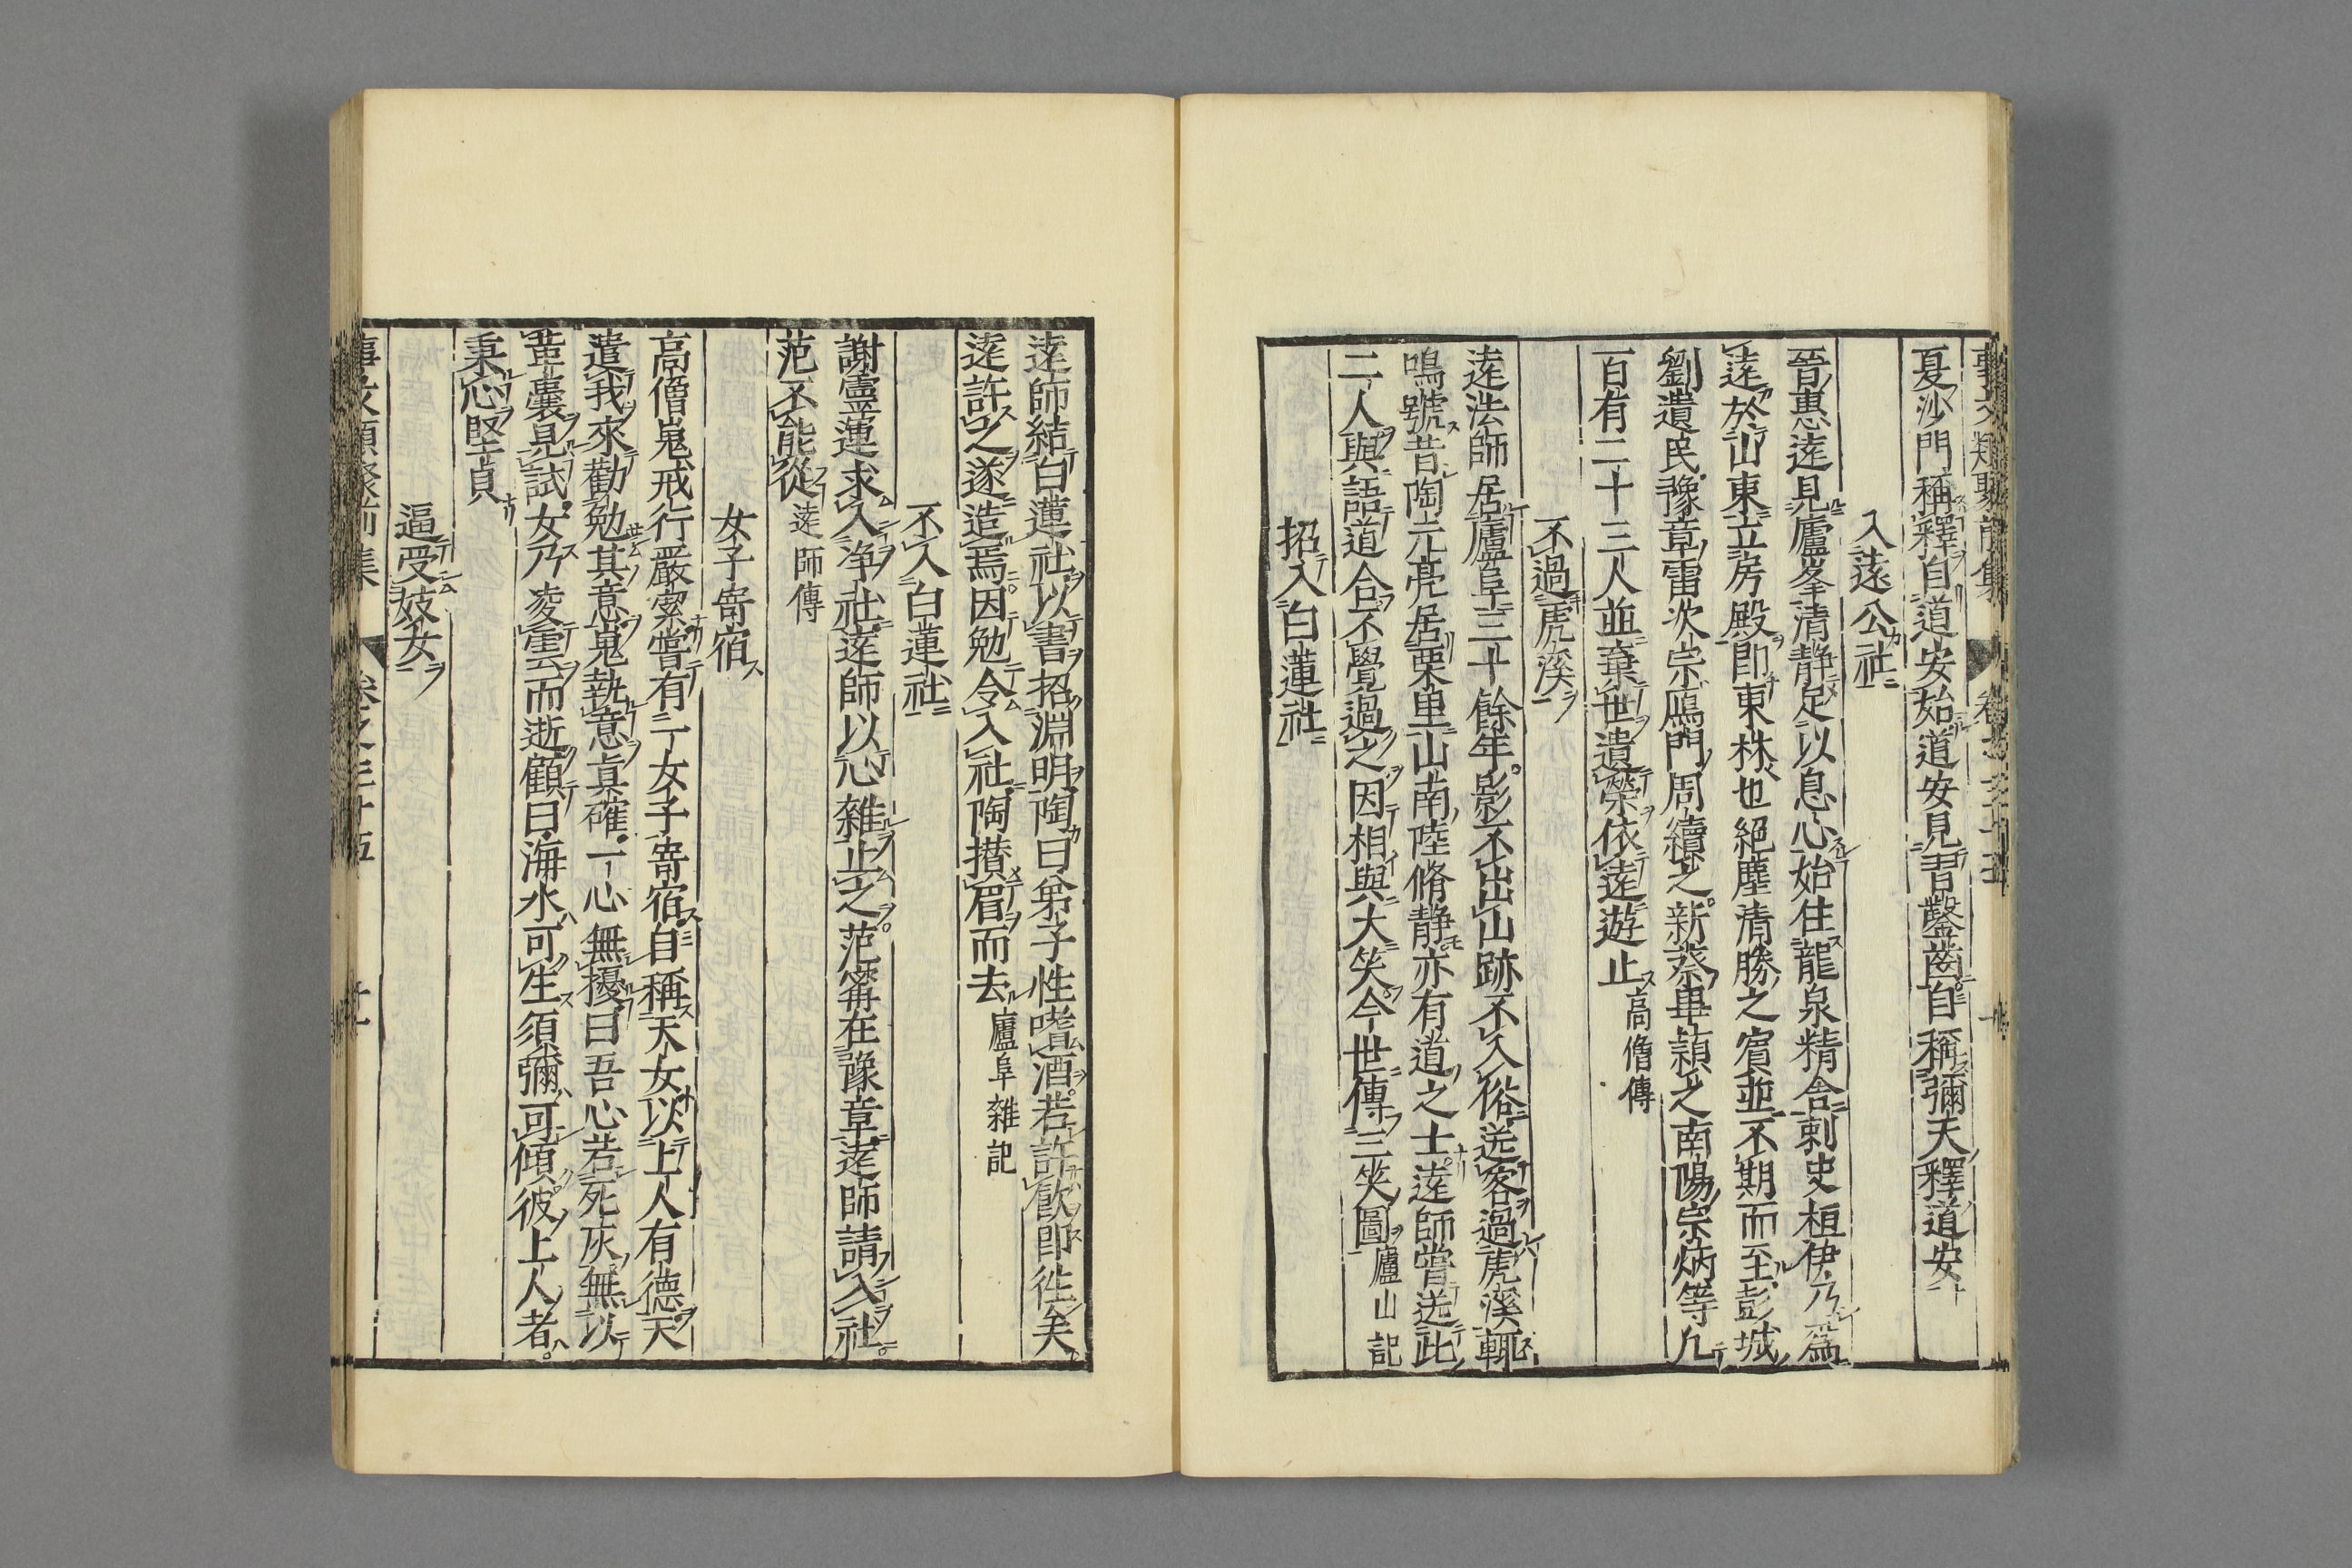 夏沙門稱釋自道安始道安見習鑿齒自稱彌天釋道安
入遠公社
晉惠遠見廬峯清静足以息心始住龍泉精舎刺史桓伊乃爲
遠於山東立房殿即東林也絕塵清勝之賓並不期而至彭城
劉遺民豫章雷次宗鴈門周續之新蔡畢穎之南陽宗炳等凡
百有二十三人並棄世遺榮依遠遊止高僧傳
不過虎溪
遠法師居廬阜三十餘年影不出山跡不入俗送客過虎溪輒
鳴號昔陶元亮居栗里山南陸脩静亦有道之士遠師嘗送此
二人與語道合不覺過之因相與大笑今世傳三笑圖廬山記
招入白蓮社
遠師結白蓮社以書招淵明陶曰弟子性嗜酒若許飲即徃矣
遠許之遂造焉因勉令入社陶攅眉而去廬阜雜記
不入白蓮社
謝靈蓮求入净社遠師以心雜止之范寗在豫章遠師請入社
范不能從遠師傳
女子寄宿
高僧嵬戒行嚴潔嘗有一女子寄宿自稱天女以上人有德天
遣我來勸勉其意嵬執意貞確一心無擾曰吾心若死灰無以
革囊見試女乃凌雲而逝顧曰海水可生須彌可傾彼上人者
秉心堅貞
逼受妓女
事文類聚前集 卷之三十五 廿一